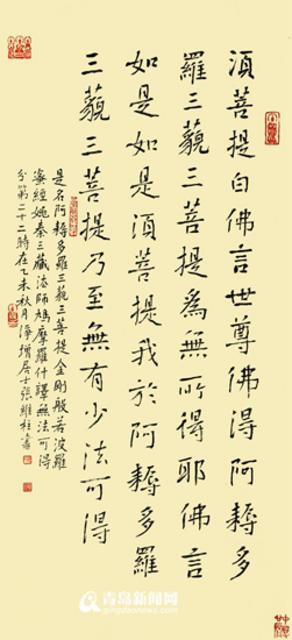 須菩提白佛言世尊佛得阿耨多
羅三藐三菩提為無所得耶佛言
如是如是須菩提我於阿耨多羅
三藐三菩提乃至無有少法可得
是名阿耨多羅三藐三菩提金剛般若波羅
蜜經姚秦三藏法師鳩摩羅什譯無法可得
分第二十二時在乙未秋月淨增居士張維柱書
青岛新闻网
qingdaonews.com